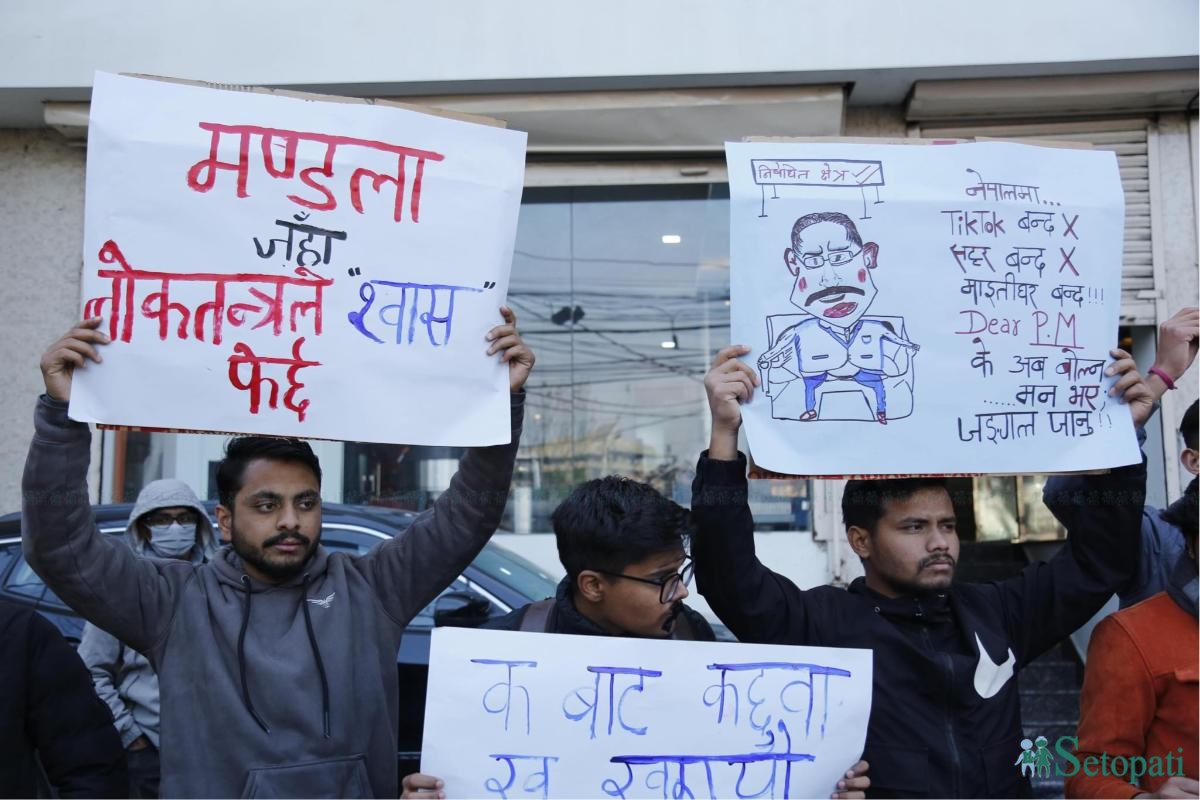 मण्डला
जहाँ
लोकतन्त्रले "श्वास"
फेर्द
निर्षेधित क्षेत्र
नेपालमा...
TikTok बन्द X
सहर बन्द X
माइतीघर बन्द!!!
Dear P.M
के अब बोल्न
.....मन भए,
जङ्गल जानु!!
क बाट कद्दुवा
ख खरायो
Setopati